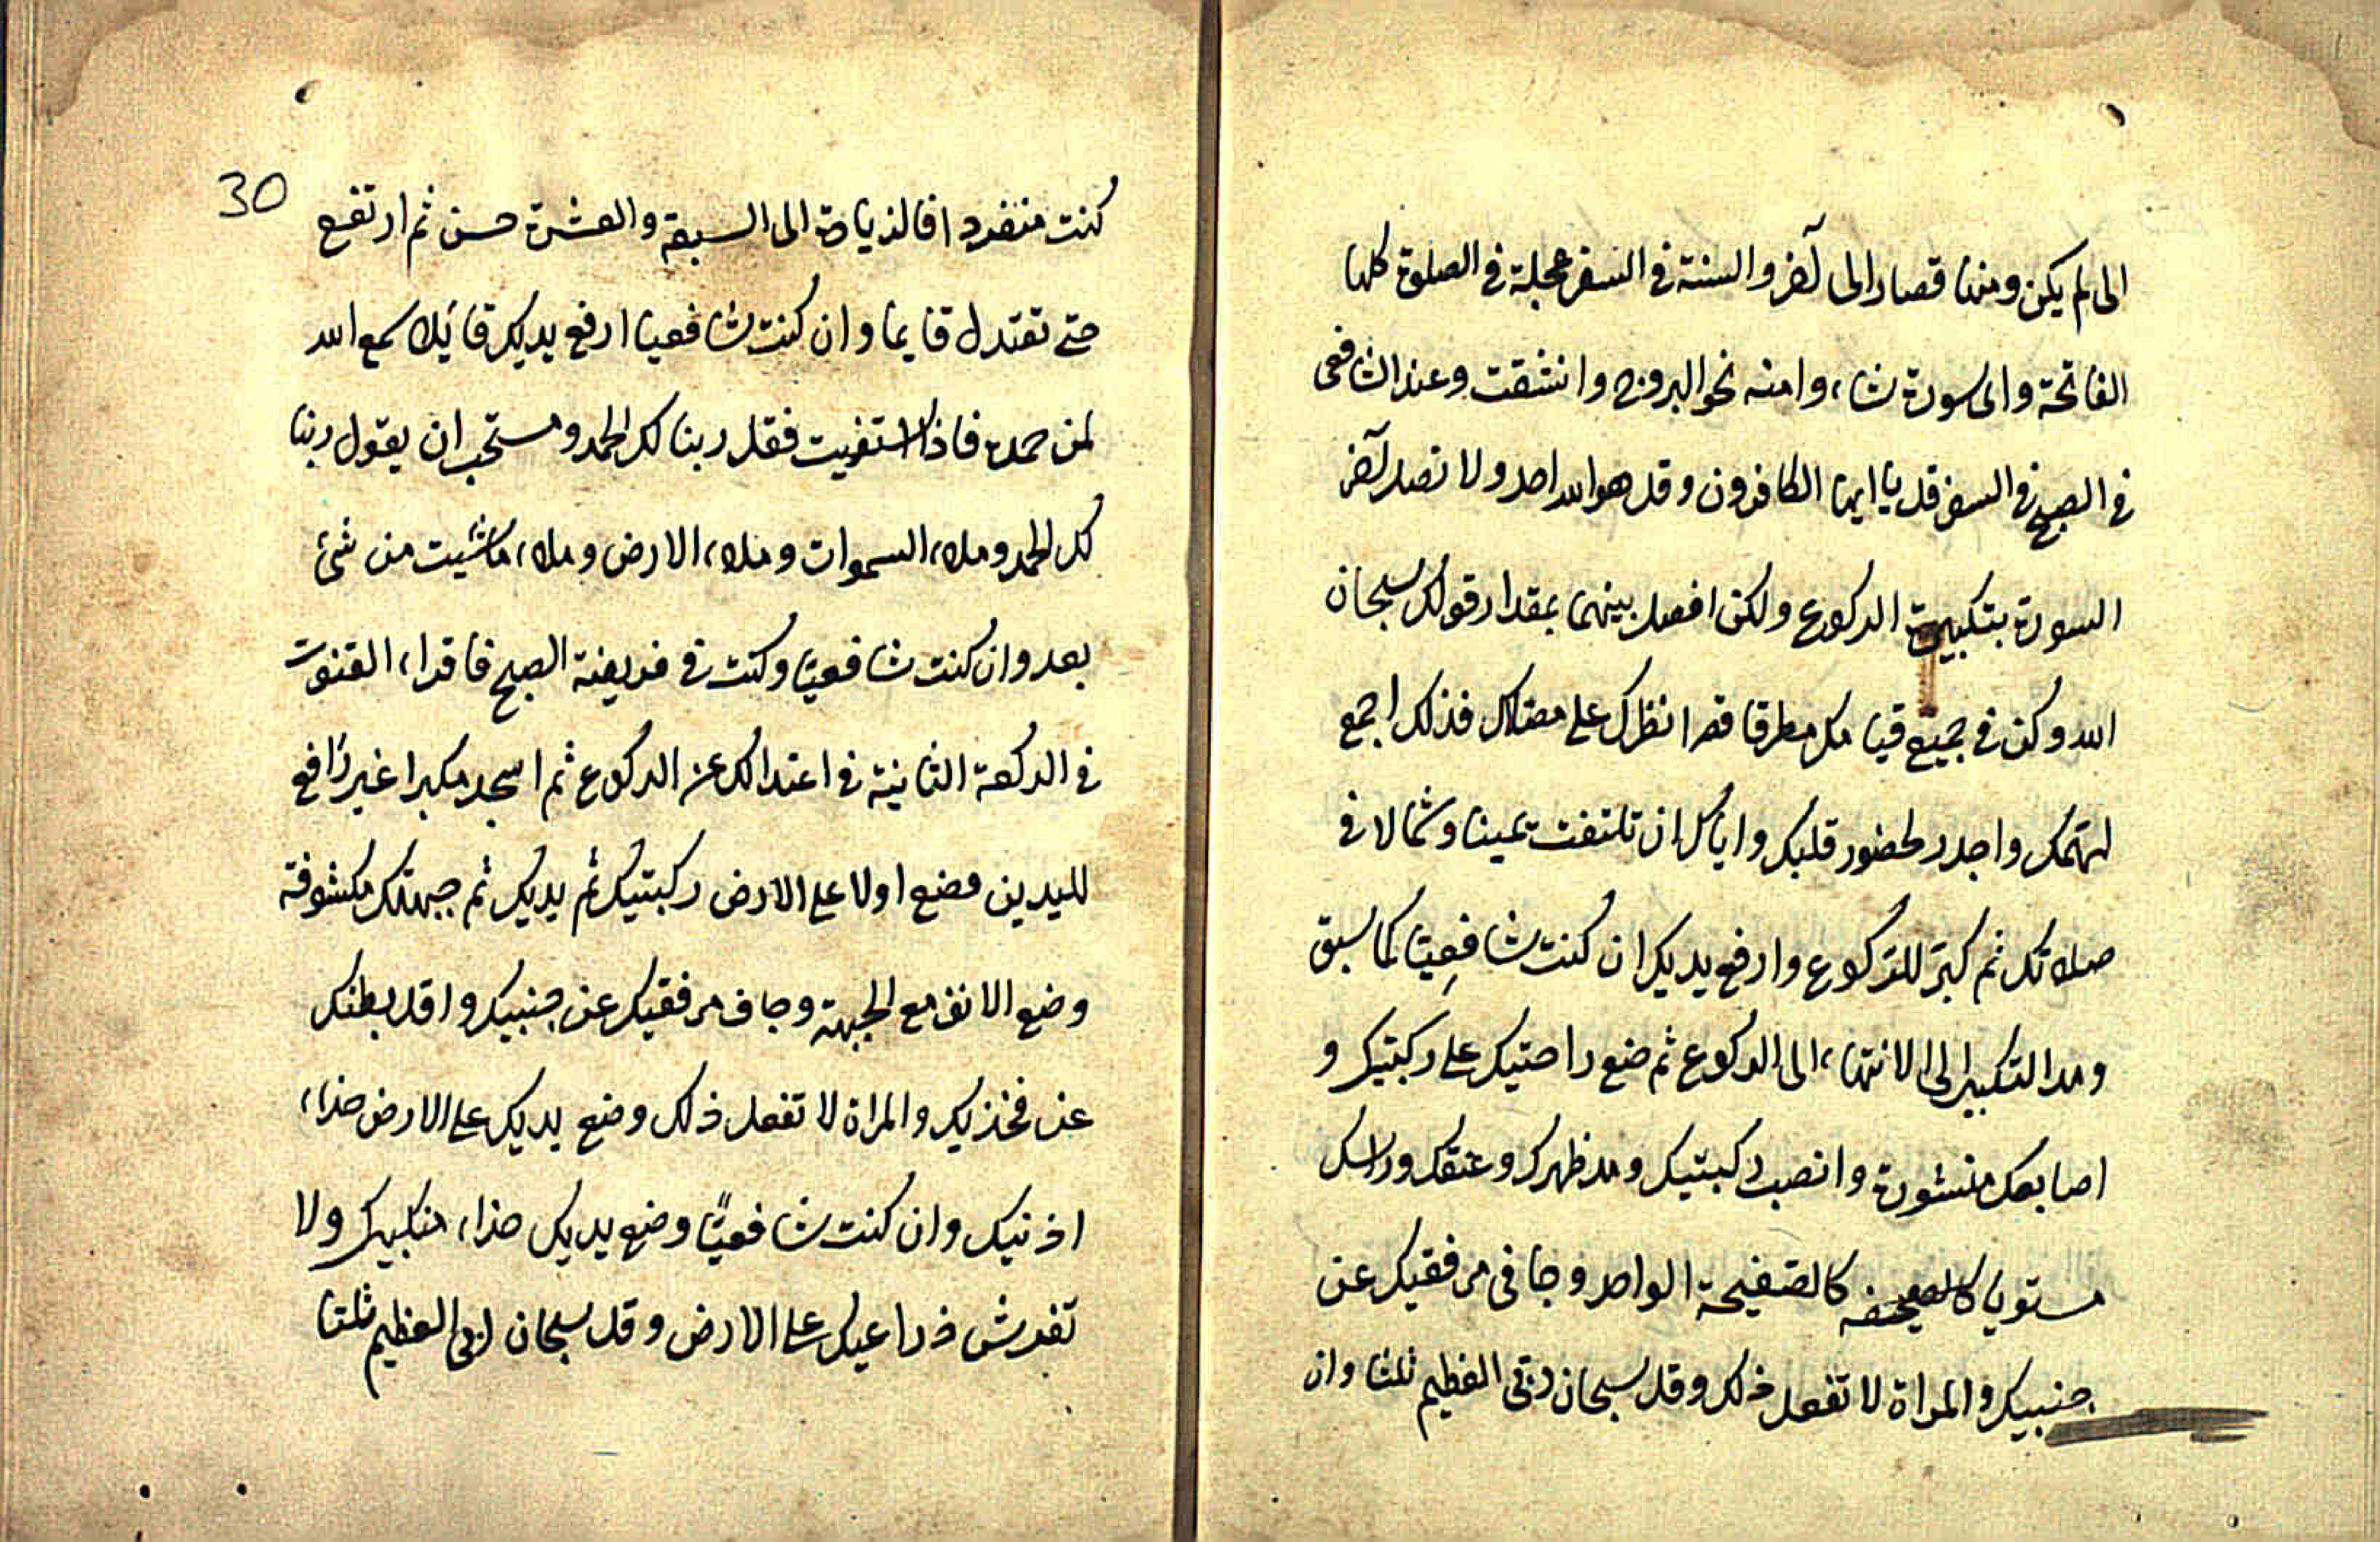 الى لم يكن ومنها قصار الى آخر والسنة فى السفر عجلة فى الصلوة كلها
الفاتحة واى سورة شاء وامنه نحو البروج وانشقت وعند الشافعى
فى الصبح فى السفر قل يا ايها الكافرون وقل هو الله احد ولا تصل آخر
السورة بتكبيرة الركوع ولكن افصل بينهما بمقدار قولك سبحان
الله وكن فى جميع قيامك مطرقا قصرا نظرك على مصلاك فذلك اجمع
لهمك واجدر لحضور قلبك واياك ان تلتفت يمينا وشمالا فى
صلاتك ثم كبر للركوع وارفع يديك ان كنت شافعيا كما سبق
ومد التكبير الى الانتهاء الى الركوع ثم ضع راحتيك على ركبتيك و
اصابعك منشورة وانصب ركبتيك ومد ظهرك وعنقك وراسك
مستويا كالصحيفه كالصفيحة الواحد وجافى مرفقيك عن
جنبيك والمراة لا تفعل ذلك وقل سبحان ربى العظيم ثلثا وان
30
كنت منفردا فالزيادة الى السبعة والعشرة حسن ثم ارتفع
حتى تعتدل قايما وان كنت شافعيا ارفع يديك قايلا سمع الله
لمن حمده فاذا استويت فقل ربنا لك الحمد ومستحب ان يقول ربنا
لك الحمد وملاء السموات وملاء الارض وملاء ماشيت من شئ
بعد وان كنت شافعيا وكنت فى فريضة الصبح فاقراء القنوت
فى الركعة الثانية فى اعتدالك عن الركوع ثم اسجد مكبرا غير رافع
لليدين فضع اولا على الارض ركبتيك ثم يديك ثم جبهتك مكشوفة
وضع الانف مع الجبهة وجاف مرفقيك عن جنبيك واقل بطنك
عن فخذيك والمراة لا تفعل ذلك وضع يديك على الارض حذاء
اذنيك وان كنت شافعيًا وضع يديك حذاء منكبيك ولا
تفرش ذراعيك على الارض وقل سبحان ربى العظيم ثلثا